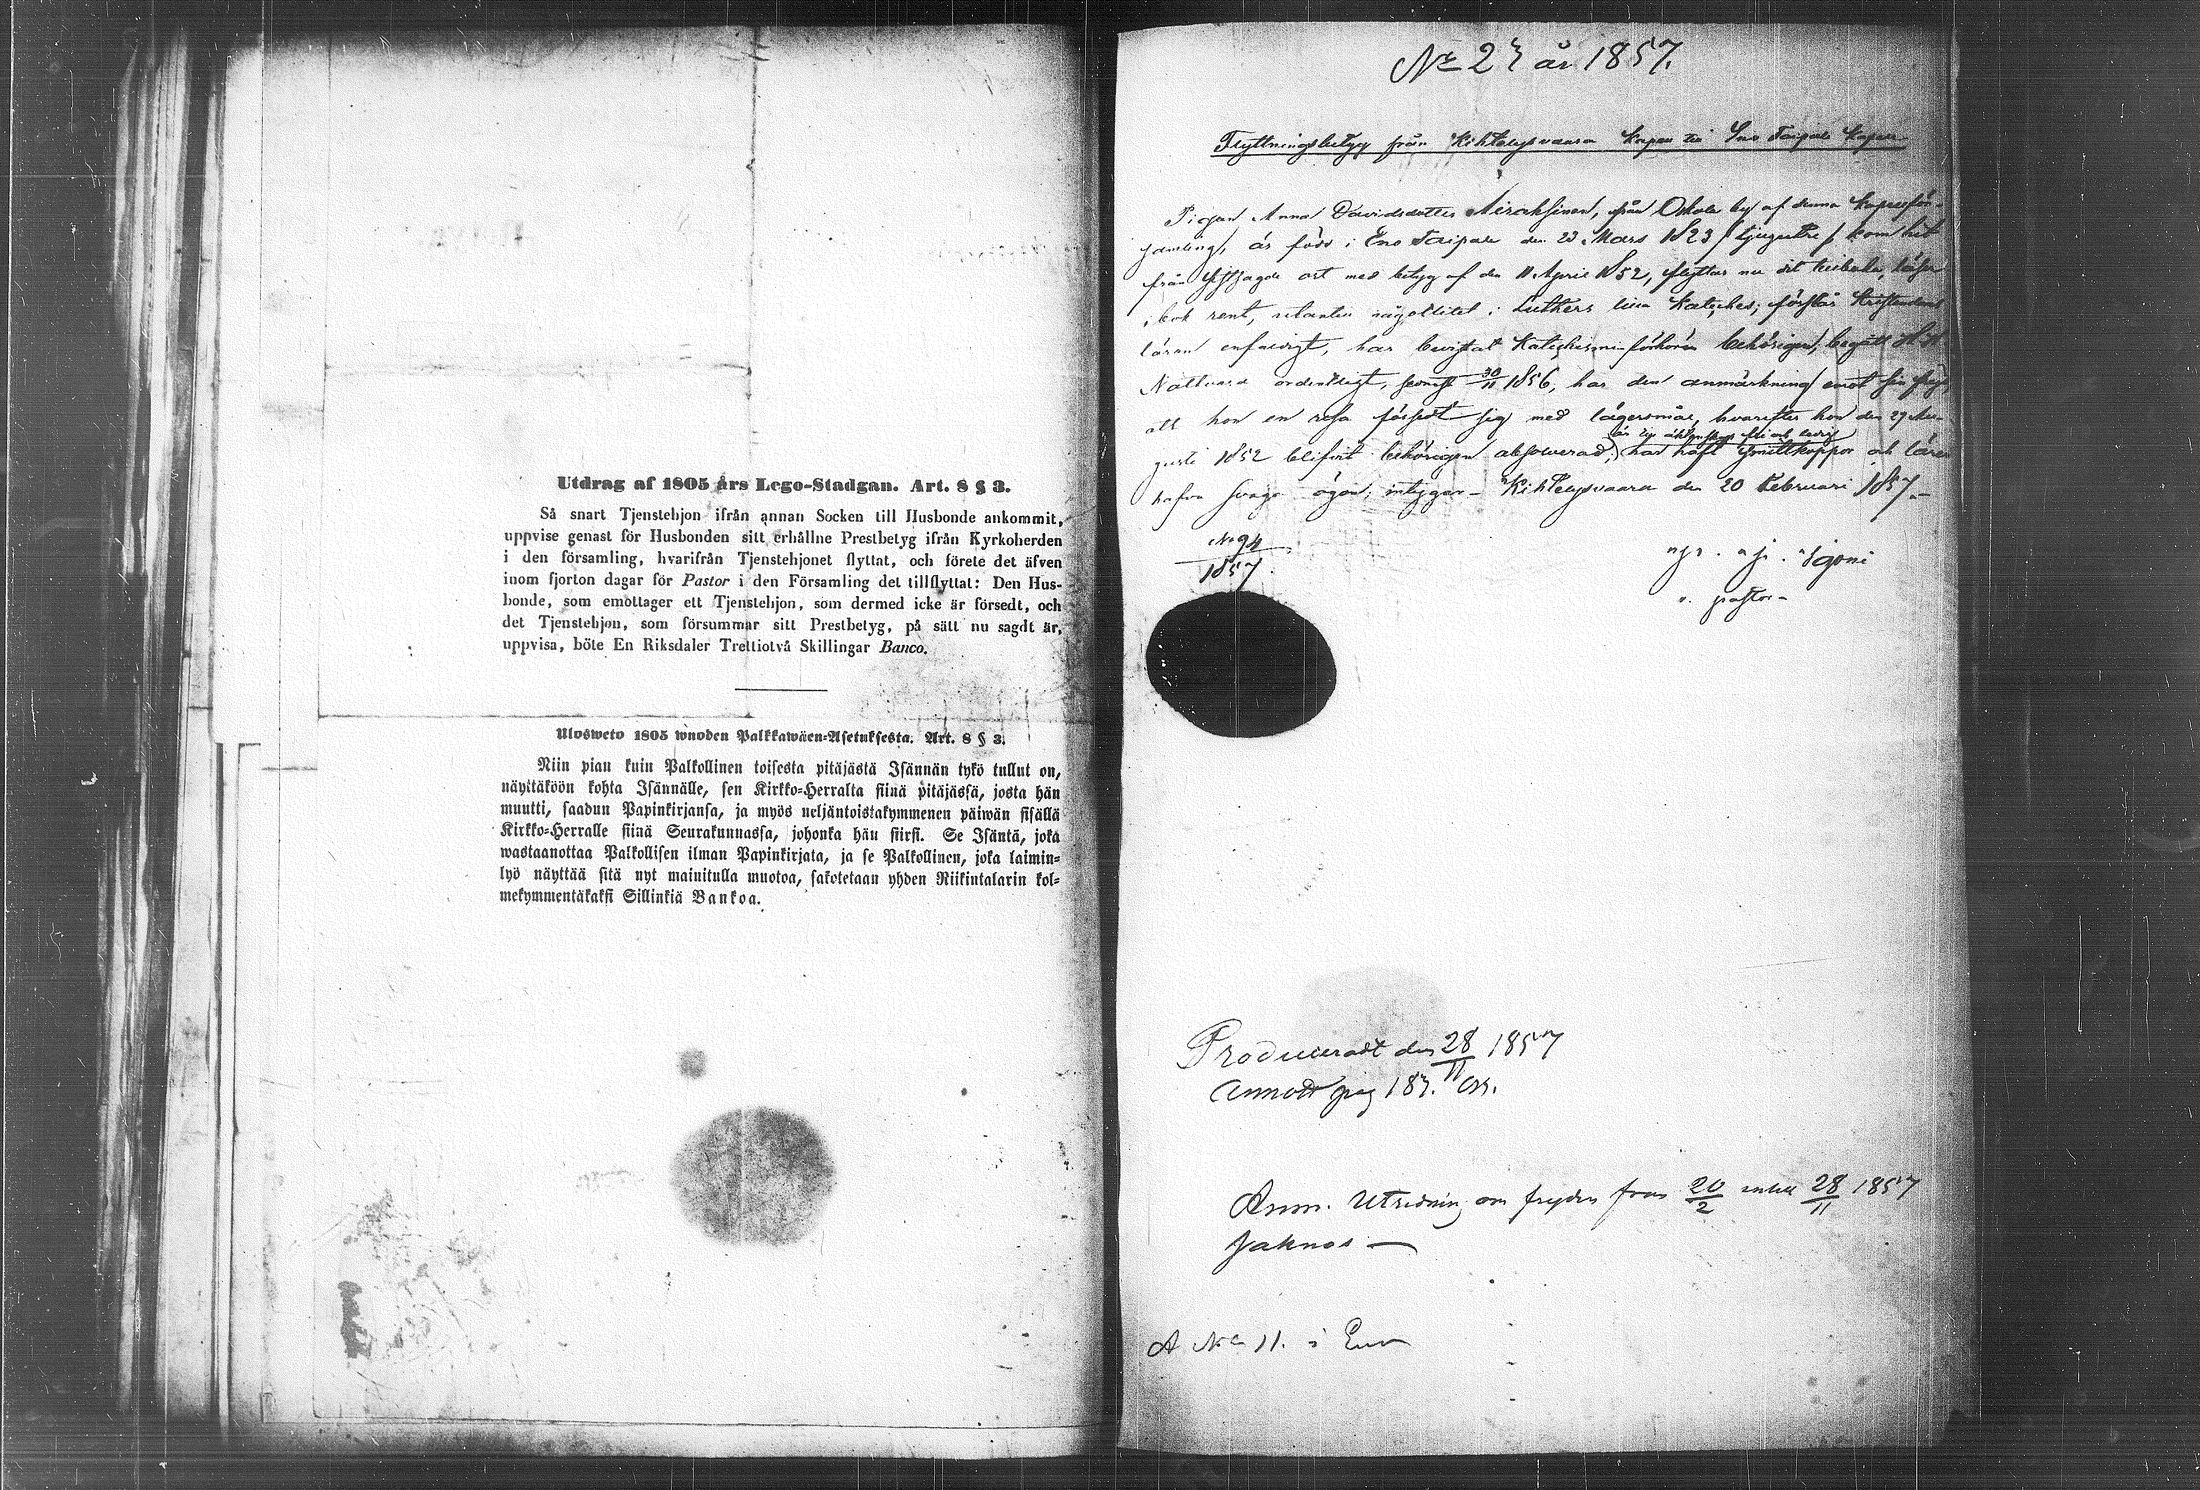 Utdrag af 1805 års Lego-Stadgan. Art. 8 § 3.
Så snart Tjenstehjon ifrån annan Socken till Husbonde ankommit,
uppvise genast för Husbonden sitt erhållne Prestbetyg ifrån Kyrkoherden
i den församling, hvarifrån Tjenstehjonet flyttat, och förete det äfven
inom fjorton dagar för Pastor i den Församling det tillflyttat: Den Hus-
bonde, som emottager ett Tjenstehjon, som dermed icke är försedt, och
det Tjenstehjon, som försummar sitt Prestbetyg, på sätt nu sagdt är,
uppvisa, böte En Riksdaler Trettiotvå Skillingar Banco.
Ulosweto 1805 wuoden Palkkawäen-Asetuksesta. Art. 8 § 3.
Niin pian kuin Palkollinen toisesta pitäjästä Isännän tykö tullut on,
näyttäköön kohta Isännälle, sen Kirkko-Herralta siinä pitäjässä, josta hän
muutti, saadun Papinkirjansa, ja myös neljäntoistakymmenen päiwän sisällä
Kirkko-Herralle siinä Seurakunnassa, johonka hän siirsi. Se Isäntä, joka
wastaanottaa Palkollisen ilman Papinkirjata, ja se Palkollinen, joka laimin-
lyö näyttää sitä nyt mainitulla muotoa, sakotetaan yhden Riikintalarin kol-
mekymmentäkaksi Sillinkiä Bankoa.
år 1857.
Flyttningsbetyg från Kihtelysvaara Kapell till Eno Taipale Kapell
Pigan Anna Davidsdotter Nirchsinen, från Oskola by af denna Kapellför-
samling, är född i Eno Taipale den 23 Mars 1823 /tjugutre/, kom hit
från sistsagde ort med betyg af den 11 April 1852, flyttar nu dit tillbaka, läser
i bok rent, utantill något litet i Luthers lilla Kateches, förstår Kristendoms
läran enfaldigt, har bevistat Katechismi-förhören behörigen, begått H. H.
Nattvard ordentligt, senast 30/11 1856, har den anmärkning emot sin frejd,
att hon en resa försedt sig med lägersmål, hvarefter hon den 29 Au-
gusti 1852 blifvit behörigen absolverad; har haft Smittkoppor och lärer
hafva svaga ögon; intygar Kihtelysvaara den 20 Februari 1857.
No 94
1857.
v. pastor
Produceradt den 28/11 1857
Annott pag 187.
Anm. Utredning om frejden från 20/2 intill 28/11 1857
saknas —
No 11. i Eno